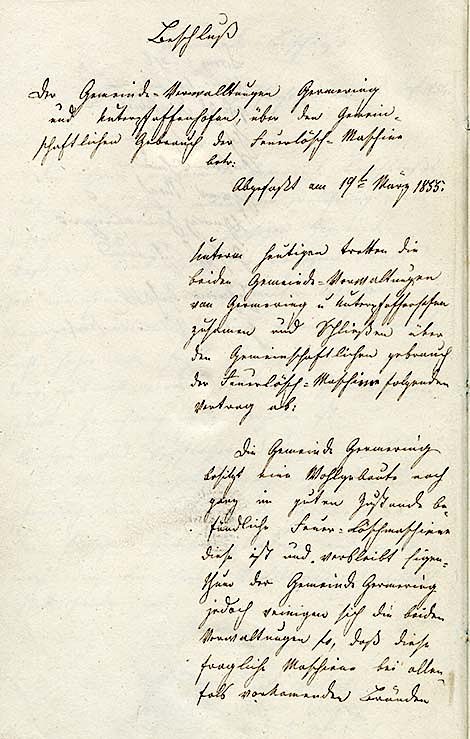 Beschluß
Der Gemeinde-Verwaltungen Germering
und Unterpfaffenhofen, über den Gemein-
schaftlichen Gebrauch der Feuerlösch-Maschine
betr:
Abgefaßt am 19t März 1855.
Unterm heutigen tretten die
beiden Gemeinde-Verwaltungen
von Germering u Unterpfaffenhofen
zusamen und schließen über
den Gemeinschaftlichen gebrauch
der Feuerlösch-Maschine folgenden
Vertrag ab:
Die Gemeinde Germering
besitzt eine Wohlgebaute noch
ganz im guten Zustande be-
findliche Feuer-Löschmaschine
diese ist und verbleibt Eigen-
thum der Gemeinde Germering
jedoch vereinigen sich die beiden
Verwaltungen so, daß diese
fragliche Maschine bei allen-
fals vorkomenden Bränden